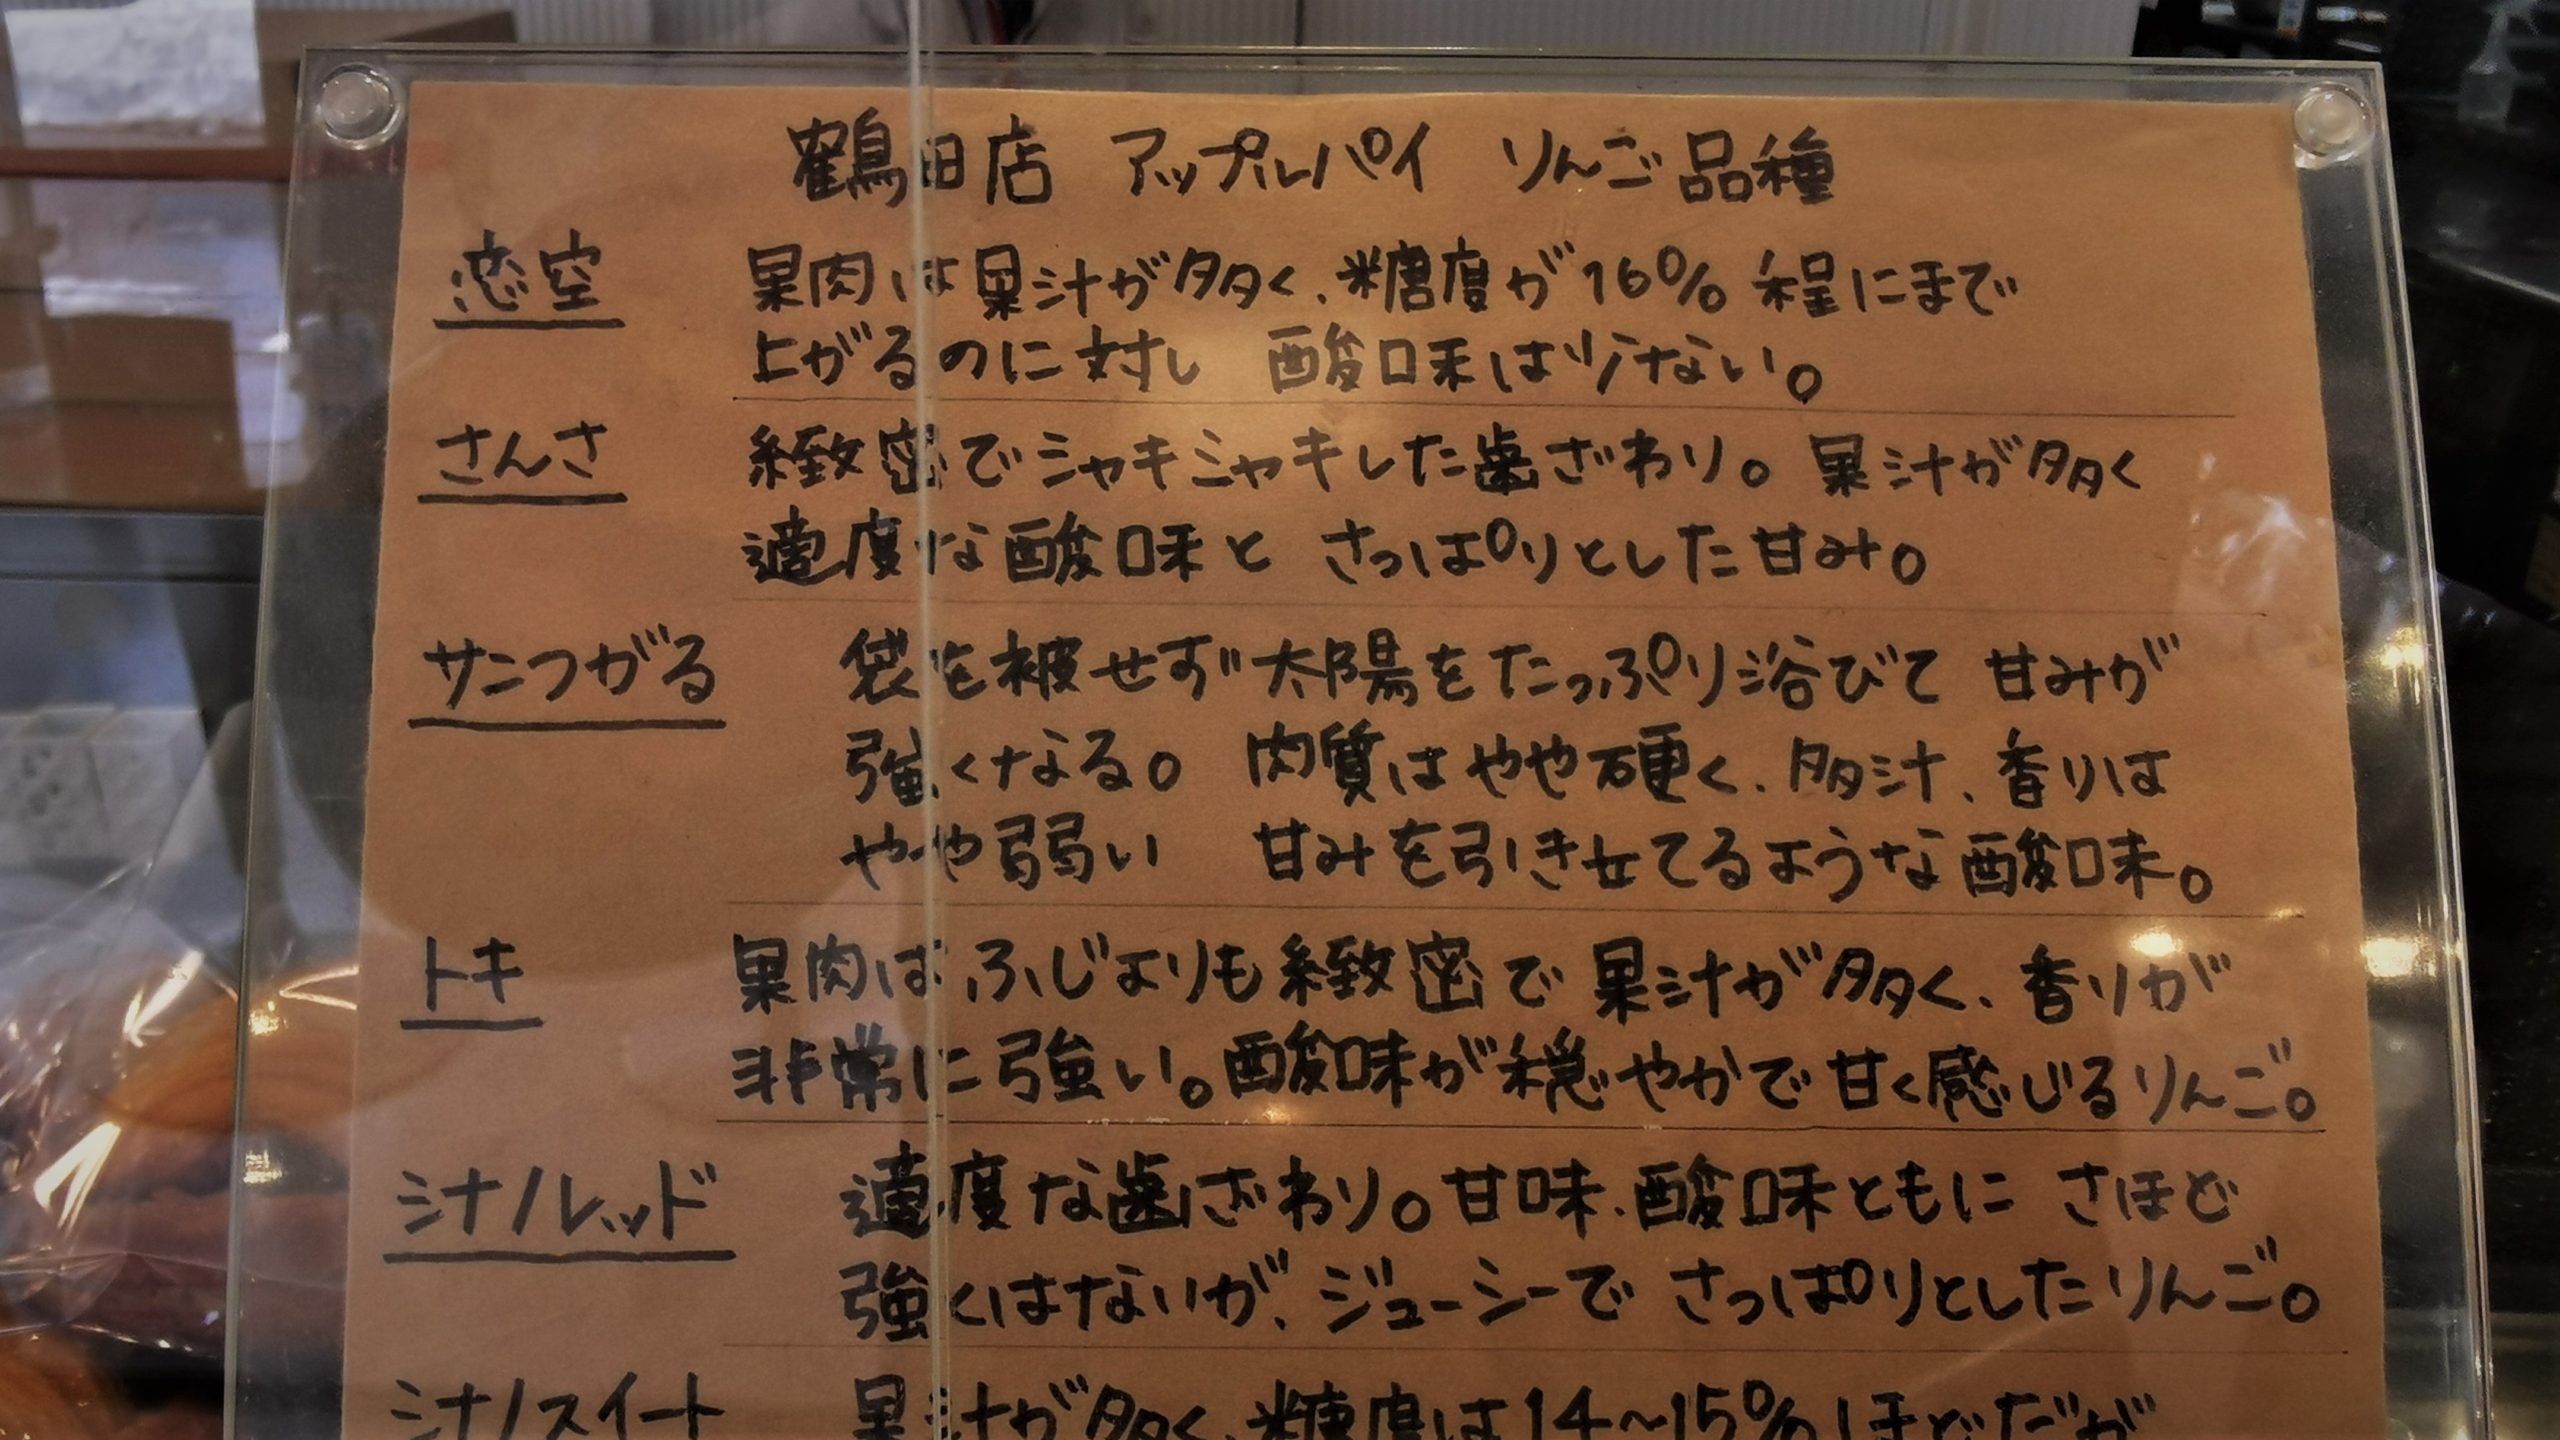 鶴田店 アップルパイ りんご品種
恋空 果肉は果汁が多く、糖度が16%程にまで
上がるのに対し 酸味は少ない。
さんさ 緻密でシャキシャキした歯ざわり。果汁が多く
適度な酸味と さっぱりとした甘み。
サンつがる 袋を被せず太陽をたっぷり浴びて 甘みが
強くなる。 肉質はやや硬く、多汁、香りは
やや弱い 甘みを引き立てるような酸味。
トキ 果肉は、ふじよりも緻密で果汁が多く、香りが
非常に強い。酸味が穏やかで甘く感じるりんご。
シナノレッド 適度な歯ざわり。甘味、酸味ともに さほど
強くはないが、ジューシーで さっぱりとしたりんご。
シナノスイート 果汁が多く、糖度は14~15%ほどだが